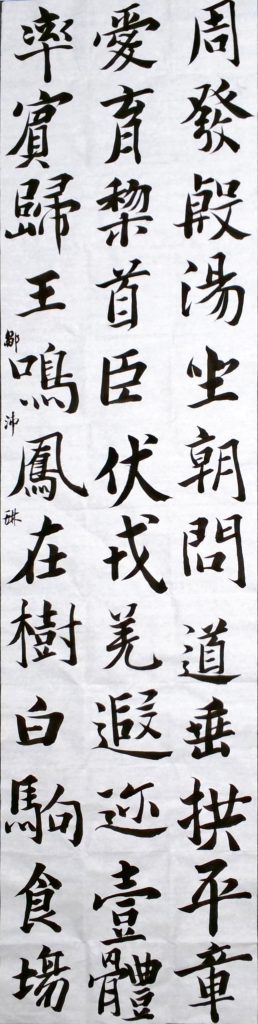 周發殷湯坐朝問道垂拱平章
愛育黎首臣伏戎羌遐迩壹體
率賓歸王鳴鳳在樹白駒食場
鄒沛琳